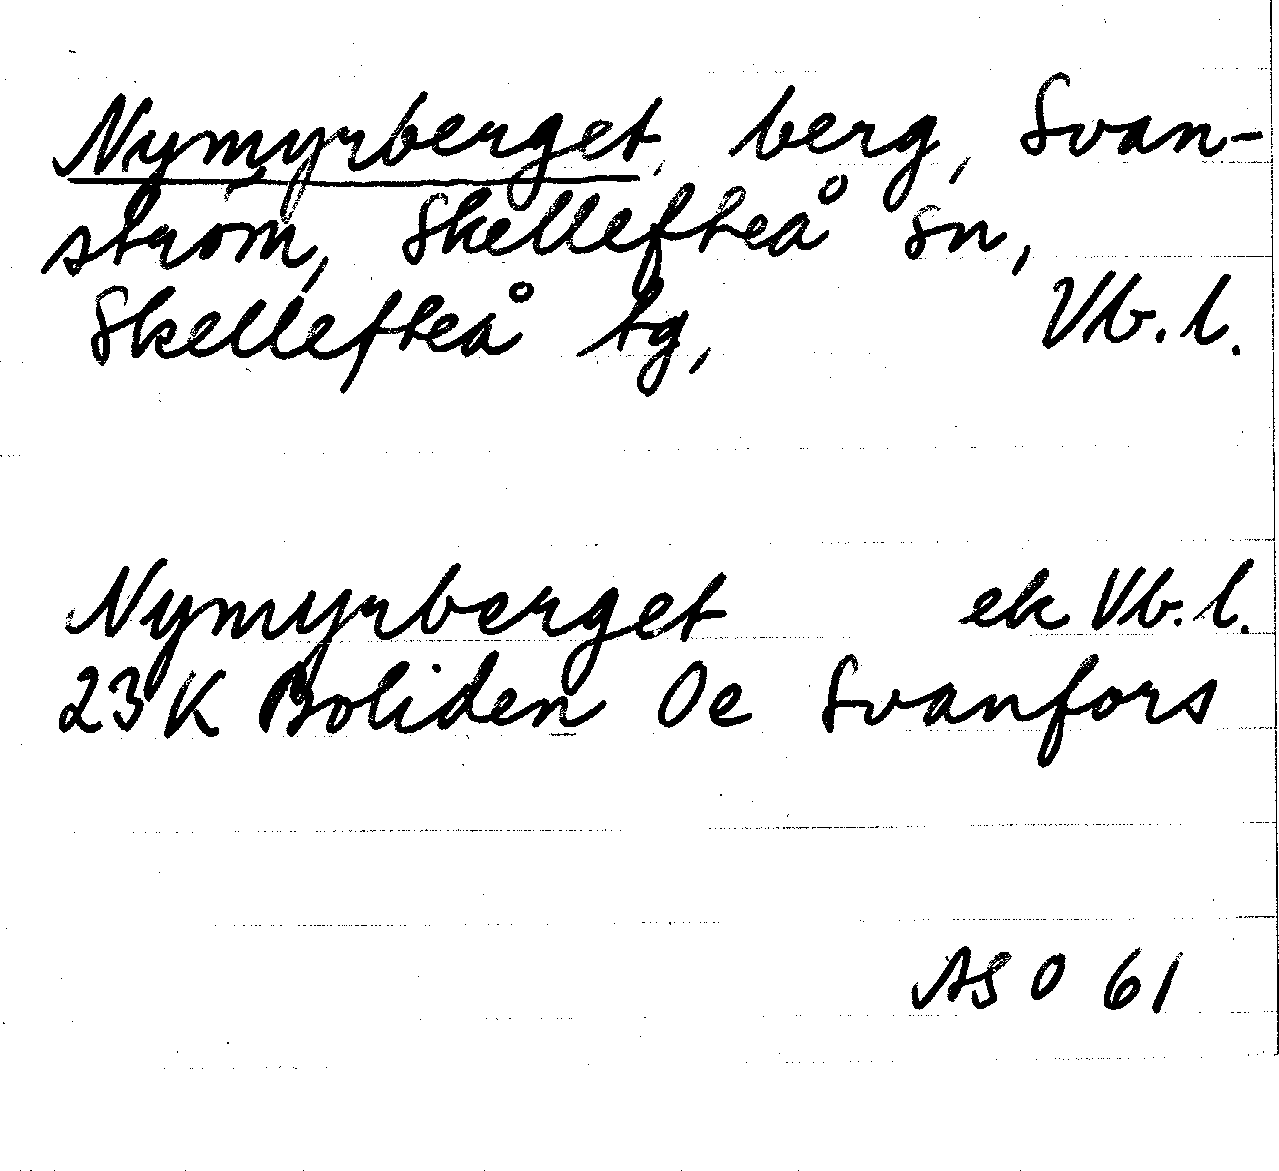 Nymyrberget, berg, Svan-
ström, Skellefteå sn,
Skellefteå tg, Vb.l.
Nymyrberget ek Vb.l.
23K Boliden 0e Svanfors
ASO 61